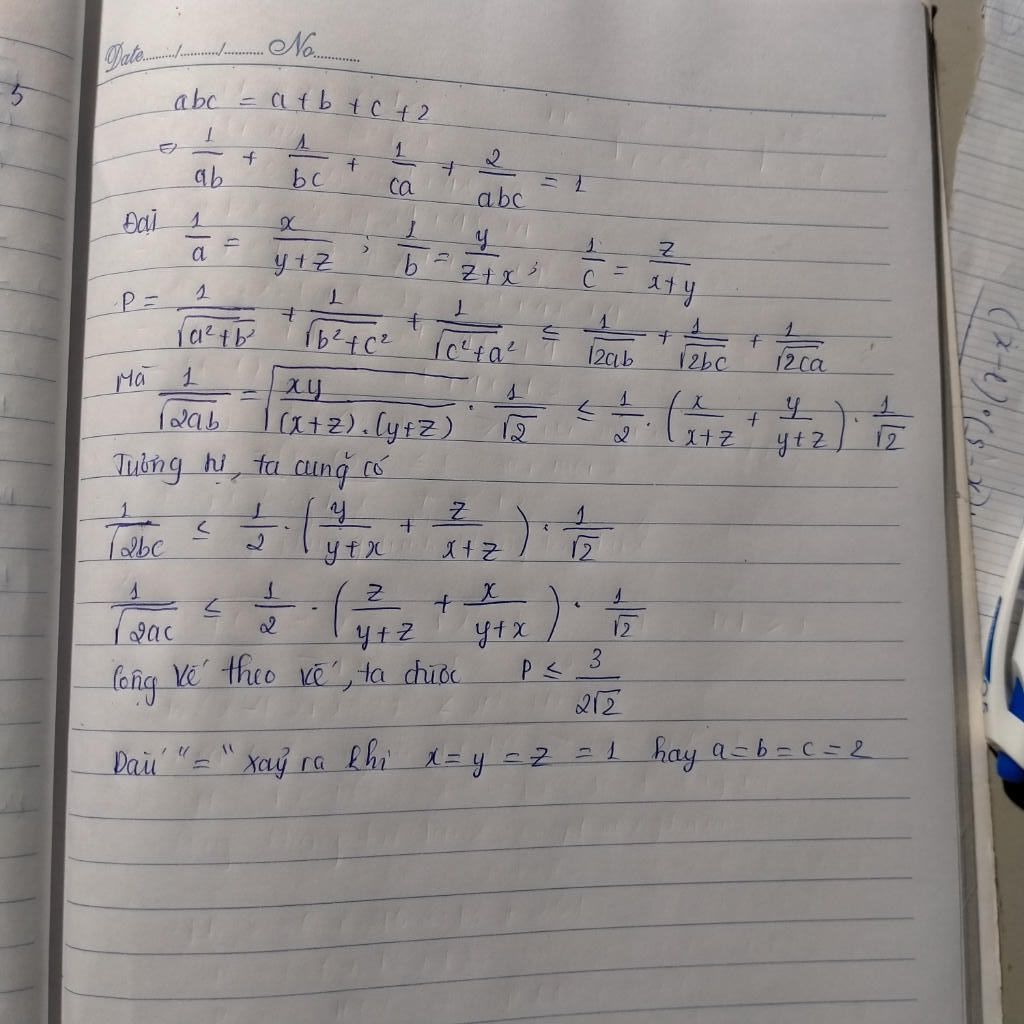 Date........./........../.......... No............
abc = a + b + c + 2
⇔ 1/ab + 1/bc + 1/ca + 2/abc = 1
Đặt 1/a = x/(y+z) ; 1/b = y/(z+x) ; 1/c = z/(x+y)
P = 1/√(a²+b²) + 1/√(b²+c²) + 1/√(c²+a²) ≤ 1/√(2ab) + 1/√(2bc) + 1/√(2ca)
Mà 1/√(2ab) = √(xy/((x+z).(y+z))) . 1/√2 ≤ 1/2 . (x/(x+z) + y/(y+z)) . 1/√2
Tương tự, ta cung có
1/√(2bc) ≤ 1/2 . (y/(y+x) + z/(x+z)) . 1/√2
1/√(2ac) ≤ 1/2 . (z/(y+z) + x/(y+x)) . 1/√2
Cộng vế theo vế, ta được P ≤ 3/(2√2)
Dấu "=" xảy ra khi x = y = z = 1 hay a = b = c = 2